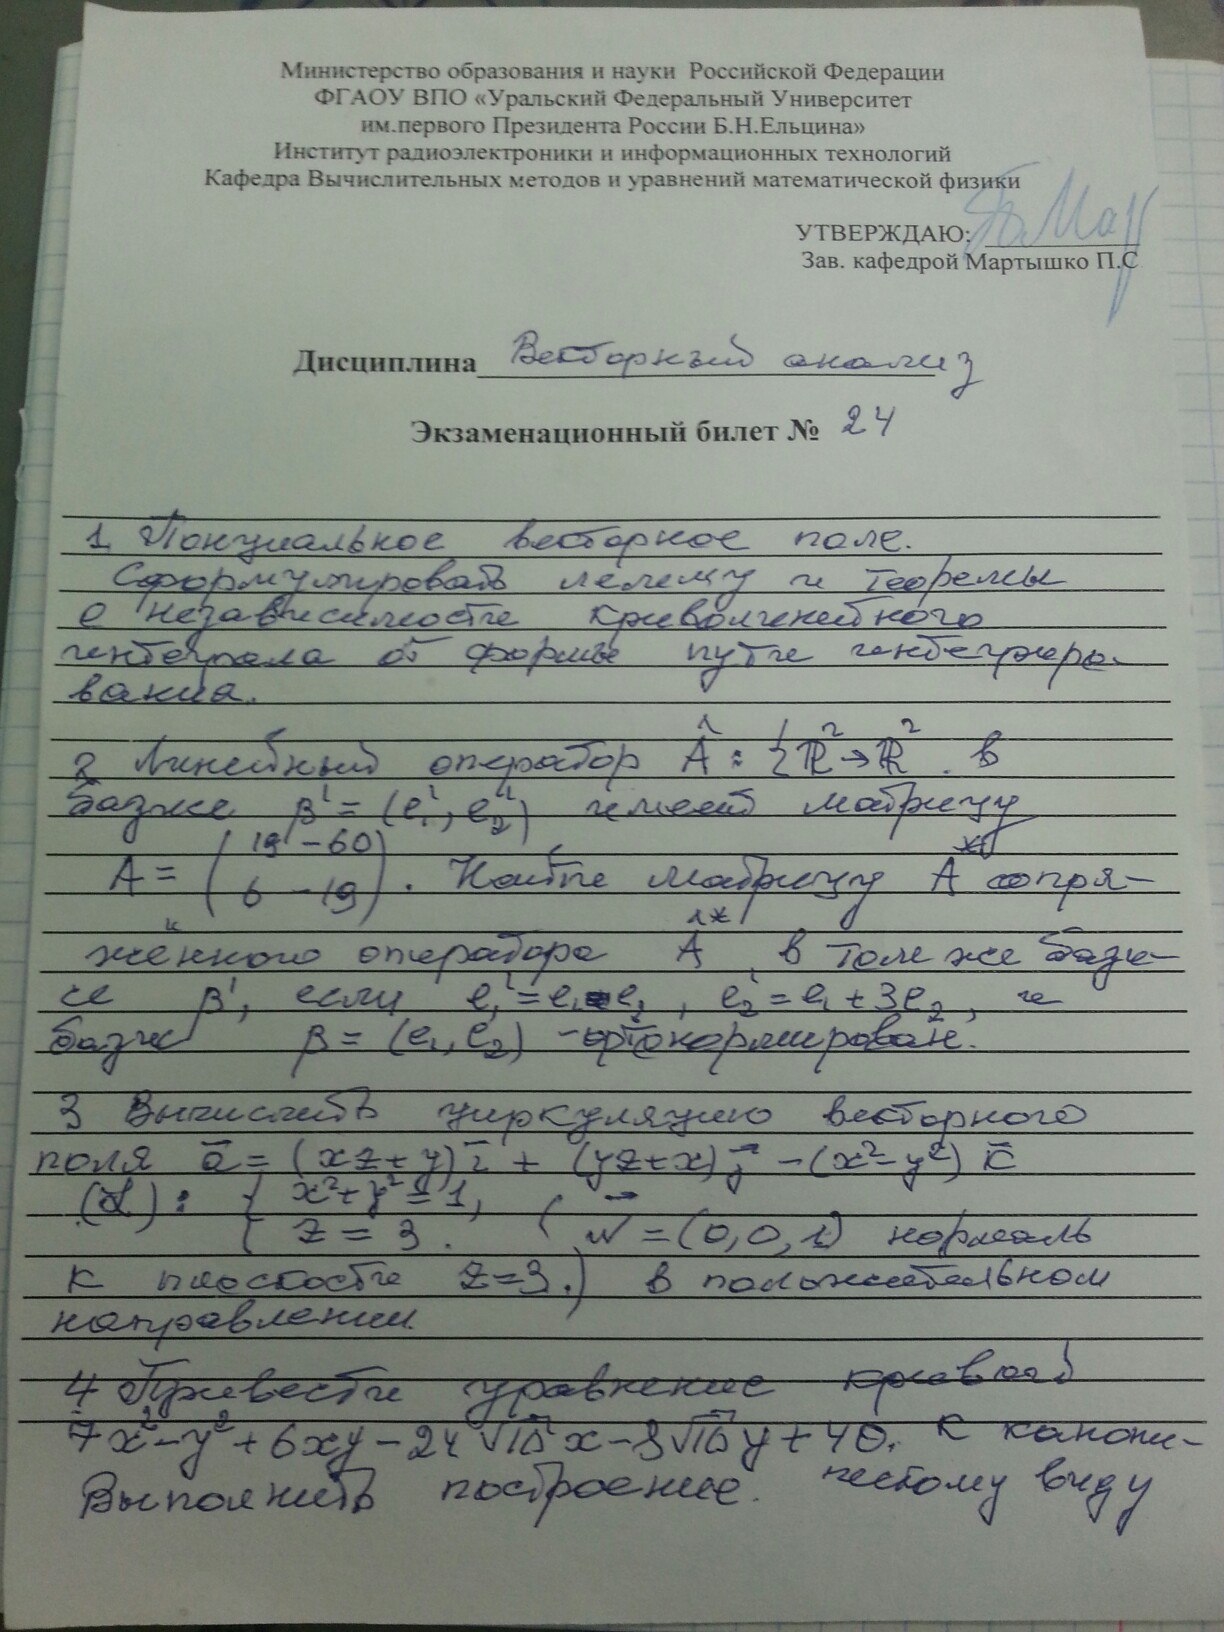 Министерство образования и науки Российской Федерации
ФГАОУ ВПО «Уральский Федеральный Университет
им.первого Президента России Б.Н.Ельцина»
Институт радиоэлектроники и информационных технологий
Кафедра Вычислительных методов и уравнений математической физики
УТВЕРЖДАЮ:
Зав. кафедрой Мартышко П.С
Дисциплина Векторный анализ
Экзаменационный билет № 24
1 Понциальное векторное поле.
Сформулировать лемму и теоремы
о независимости криволинейного
интеграла от формы пути интегриро-
вания.
2 Линейный оператор Â : ℝ² → ℝ². в
базисе β' = (e₁', e₂') имеет матрицу
A = (19 -60
6 -19). Найти матрицу A* сопря-
жённого оператора Â* в том же бази-
се β', если e₁' = e₁ e₂, e₂' = e₁ + 3e₂, и
базис β = (e₁, e₂) - ортонормирован.
3 Вычислить циркуляцию векторного
поля a̅ = (xz+y) i̅ + (yz+x) j⃗ - (x²-y²) k̅
(L): { x²+y² = 1,
z = 3. ( N⃗ = (0,0,1) нормаль
к плоскости z=3.) в положительном
направлении.
4 Привести уравнение кривой
7x²-y²+6xy-24√10 x-8√10 y+40. к канони-
ческому виду
Выполнить построение.